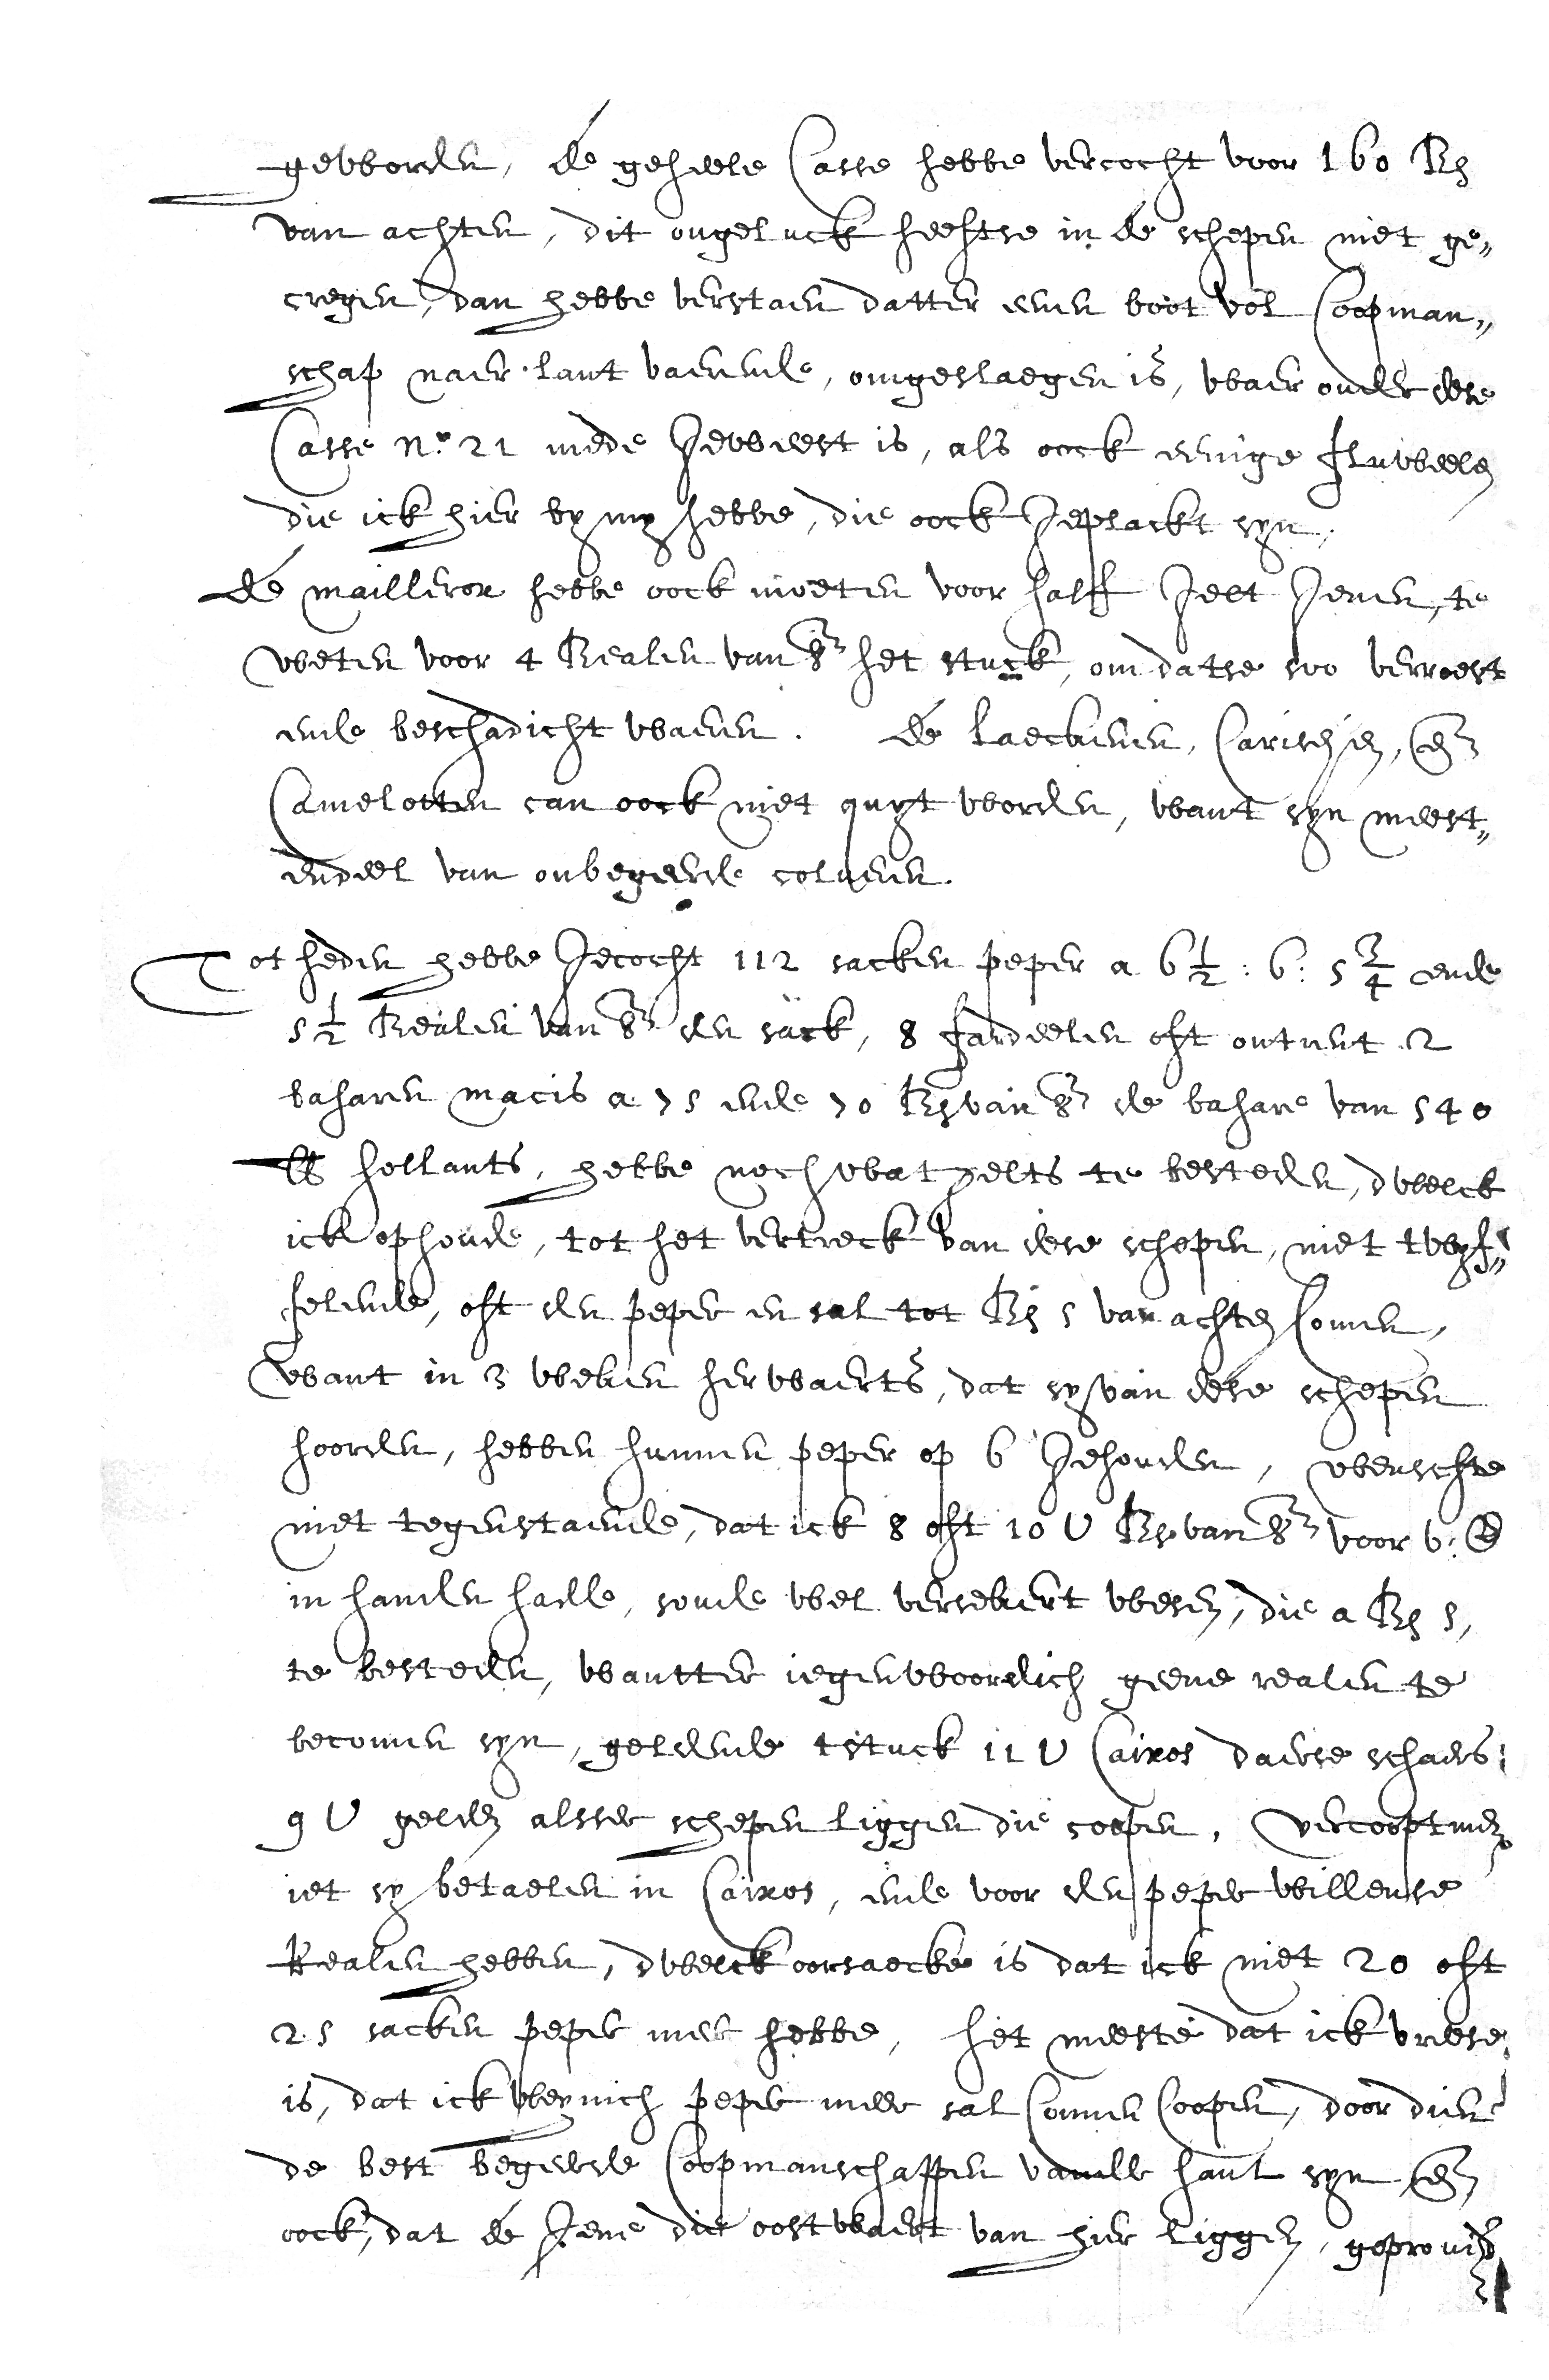 geworden, de geheele Casse hebbe vercocht voor 160 Rs
van achten, dit ongeluck heeftse in de schepen niet ge„
cregen, dan hebbe verstaen datter eenen boot vol Coopman„
schap naer lant vaerende, omgeslaegen is, waer onder dese
Casse No. 21 mede Jeweest is, als oock eenige fluweelen
die ick hier by my hebbe, die oock Jeplackt syn,
de mailleron hebbe oock moeten voor halff Jelt Jeven, te
weten voor 4 Realen van 8en het stuck, om datse soo verroest
ende beschadicht waeren. de Laeckenen, Carisejen, En
Camelotten can oock niet quyt worden, want syn meest„
endeel van onbegeerde coleuren.
Tot heden hebbe Jecocht 112 sacken peper a 6 1/2 : 6 : 5 3/4 ende
5 1/2 Realen van 8en den sack, 8 fardeelen oft ontrent 2
baharen macis a 75 ende 70 Rs van 8en de bahare van 540
lb hollants, hebbe noch wat gelts te besteden, dwelck
ick ophoude, tot het vertreck van dese schepen, niet twyf„
felende, oft den peper en sal tot Rs 5 van achten Comen,
want in 3 weken herwaerts, dat sy van dese schepen
hoorden, hebben hunnen peper op 6 Jehouden, wenschte
niet tegenstaende, dat ick 8 oft 10 U Rs van 8en voor v: E
in handen hadde, soude wel versekert wesen, die a Rs 5,
te besteden, wantter iegenwoordich geene realen te
becomen syn, geldende tstuck 11 U Caixos daerse schaers
9 U gelden alsser schepen liggen die coopen, vercooptmen
iet sy betaelen in Caixos, ende voor den peper willense
Realen hebben, dwelck oorsaecke is dat ick niet 20 oft
25 sacken peper meer hebbe, het meeste dat ick vreese
is, dat ick weynich peper meer sal Connen Coopen, door dien
de best begeerde Coopmanschappen vander hant syn En
oock, dat de Jene die oostwaert van hier liggen, geprovi„